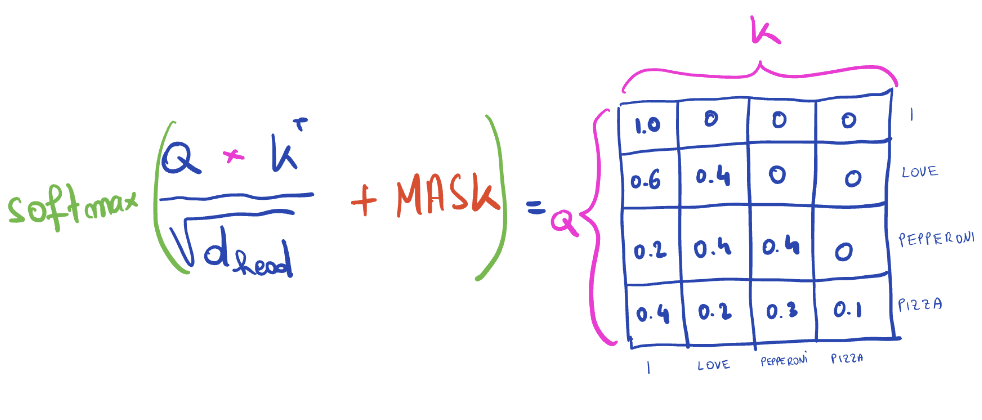 K
softmax ( Q * K^T / √d_head + MASK ) = Q
1.0 0 0 0 I
0.6 0.4 0 0 LOVE
0.2 0.4 0.4 0 PEPPERONI
0.4 0.2 0.3 0.1 PIZZA
I LOVE PEPPERONI PIZZA